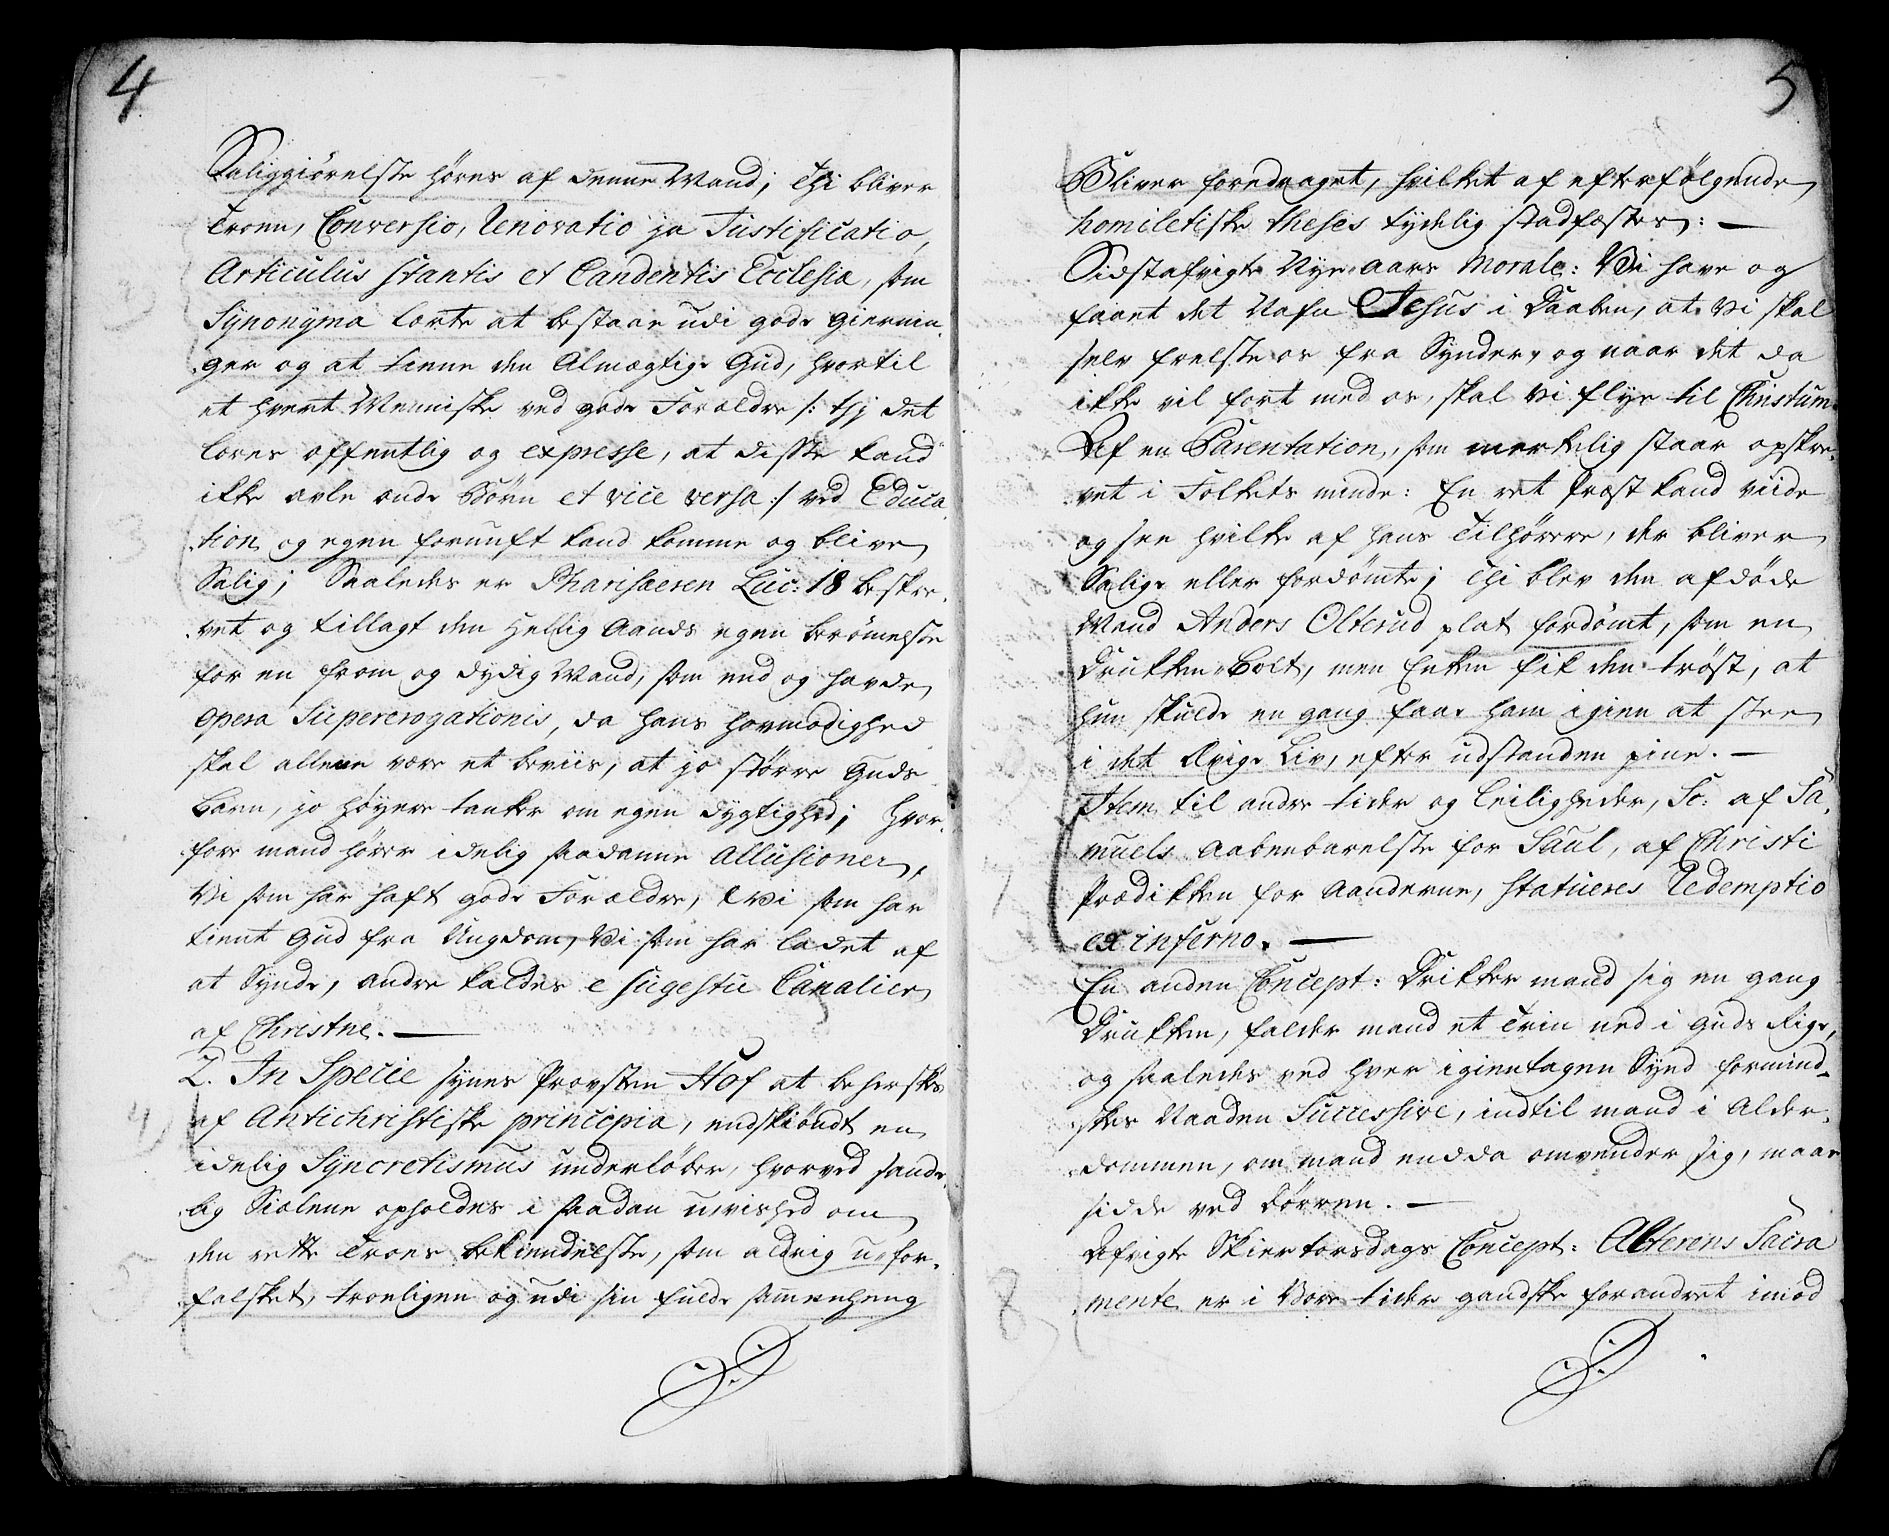 4
Saliggiörelse höres af denne Mand; thi bliver
Troen, Conversio, Renovatio ja Justificatio,
Articulus stantis et Candentis Ecclesia, som
Synonÿma lærte at bestaae udi gode Giernin-
ger og at tiene den Almægtige Gud, hvortil
et hvert Menniske ved gode Forældre /: thj det
læres offentlig og expresse, at disse kand
ikke avle onde Börn et vice versa :/ ved Educa-
tion og egen fornuft kand komme og blive
Salig; Saaledes er Pharisæeren Luc: 18 beskre-
vet og tillagt den Hellig Aands egen berömelse
for en from og dydig Mand, som end og havde
Opera Supererogationis, da hans hovmodighed
skal allene være et beviis, at jo större Guds
barn, jo höyere tanker om egen dygtighed; Hvor-
fore mand hörer idelig saadanne Allusioner,
Vi som har haft gode Forældre, Vi som har
tient Gud fra Ungdom, Vi som har ladet af
at Synde, andre kaldes e sugestu Canalier
af Christne. —
2. In Specie synes Provsten Hof at beherskes
af Antichristiske principia, endskiöndt en
idelig Syncretismus underlöber, hvorved sande-
lig Siælene opholdes i saadan uvished om
den rette Troes bekiendelse, som aldrig u-for-
falsket, troeligen og udi sin fulde sammenheng
5
Bliver foredraget, hvilket af efterfölgende
homiletiske theses tydelig stadfæstes: —
Sidstafvigte Nye-aars Morale: Vi have og
faaet det Nafn Jesus i Daaben, at vi skal
selv frelse os fra Synder, og naar det da
ikke vil fort med os, skal vi flye til Christum
Af en Parentation, som merkelig staar opskre-
vet i Folkets minde: En ret Præst kand viide
og see hvilke af hans Tilhörere, der bliver
Salige eller fordömte; thi blev den afdöde
Mand Anders Olterud plat fordömt, som en
Drukken-bolt, men Enken fik den tröst, at
hun skulde en gang faae ham igien at see
i det Ævige Liv, efter udstanden pine. —
Item til andre tider og leiligheder, Sc: af Sa-
muels aabenbarelse for Saul, af Christi
Prædikken for Aanderne, statueres Redemptio
ex inferno. —
En anden Concept: Drikker mand sig en gang
Drukken, falder mand et Trin ned i Guds Rige,
og saaledes ved hver igientagen Synd formind-
skes Naaden Successive, indtil mand i Alder-
dommen, om mand endda omvender sig, maae
sidde ved Dörren. —
Afvigte Skiertorsdags Concept: Alterens Sacra
mente er i Vore tider gandske forandret imod
8